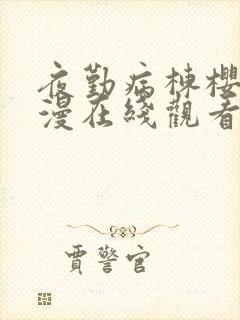 夜勤病棟櫻
漫在綫觀看
賈警官